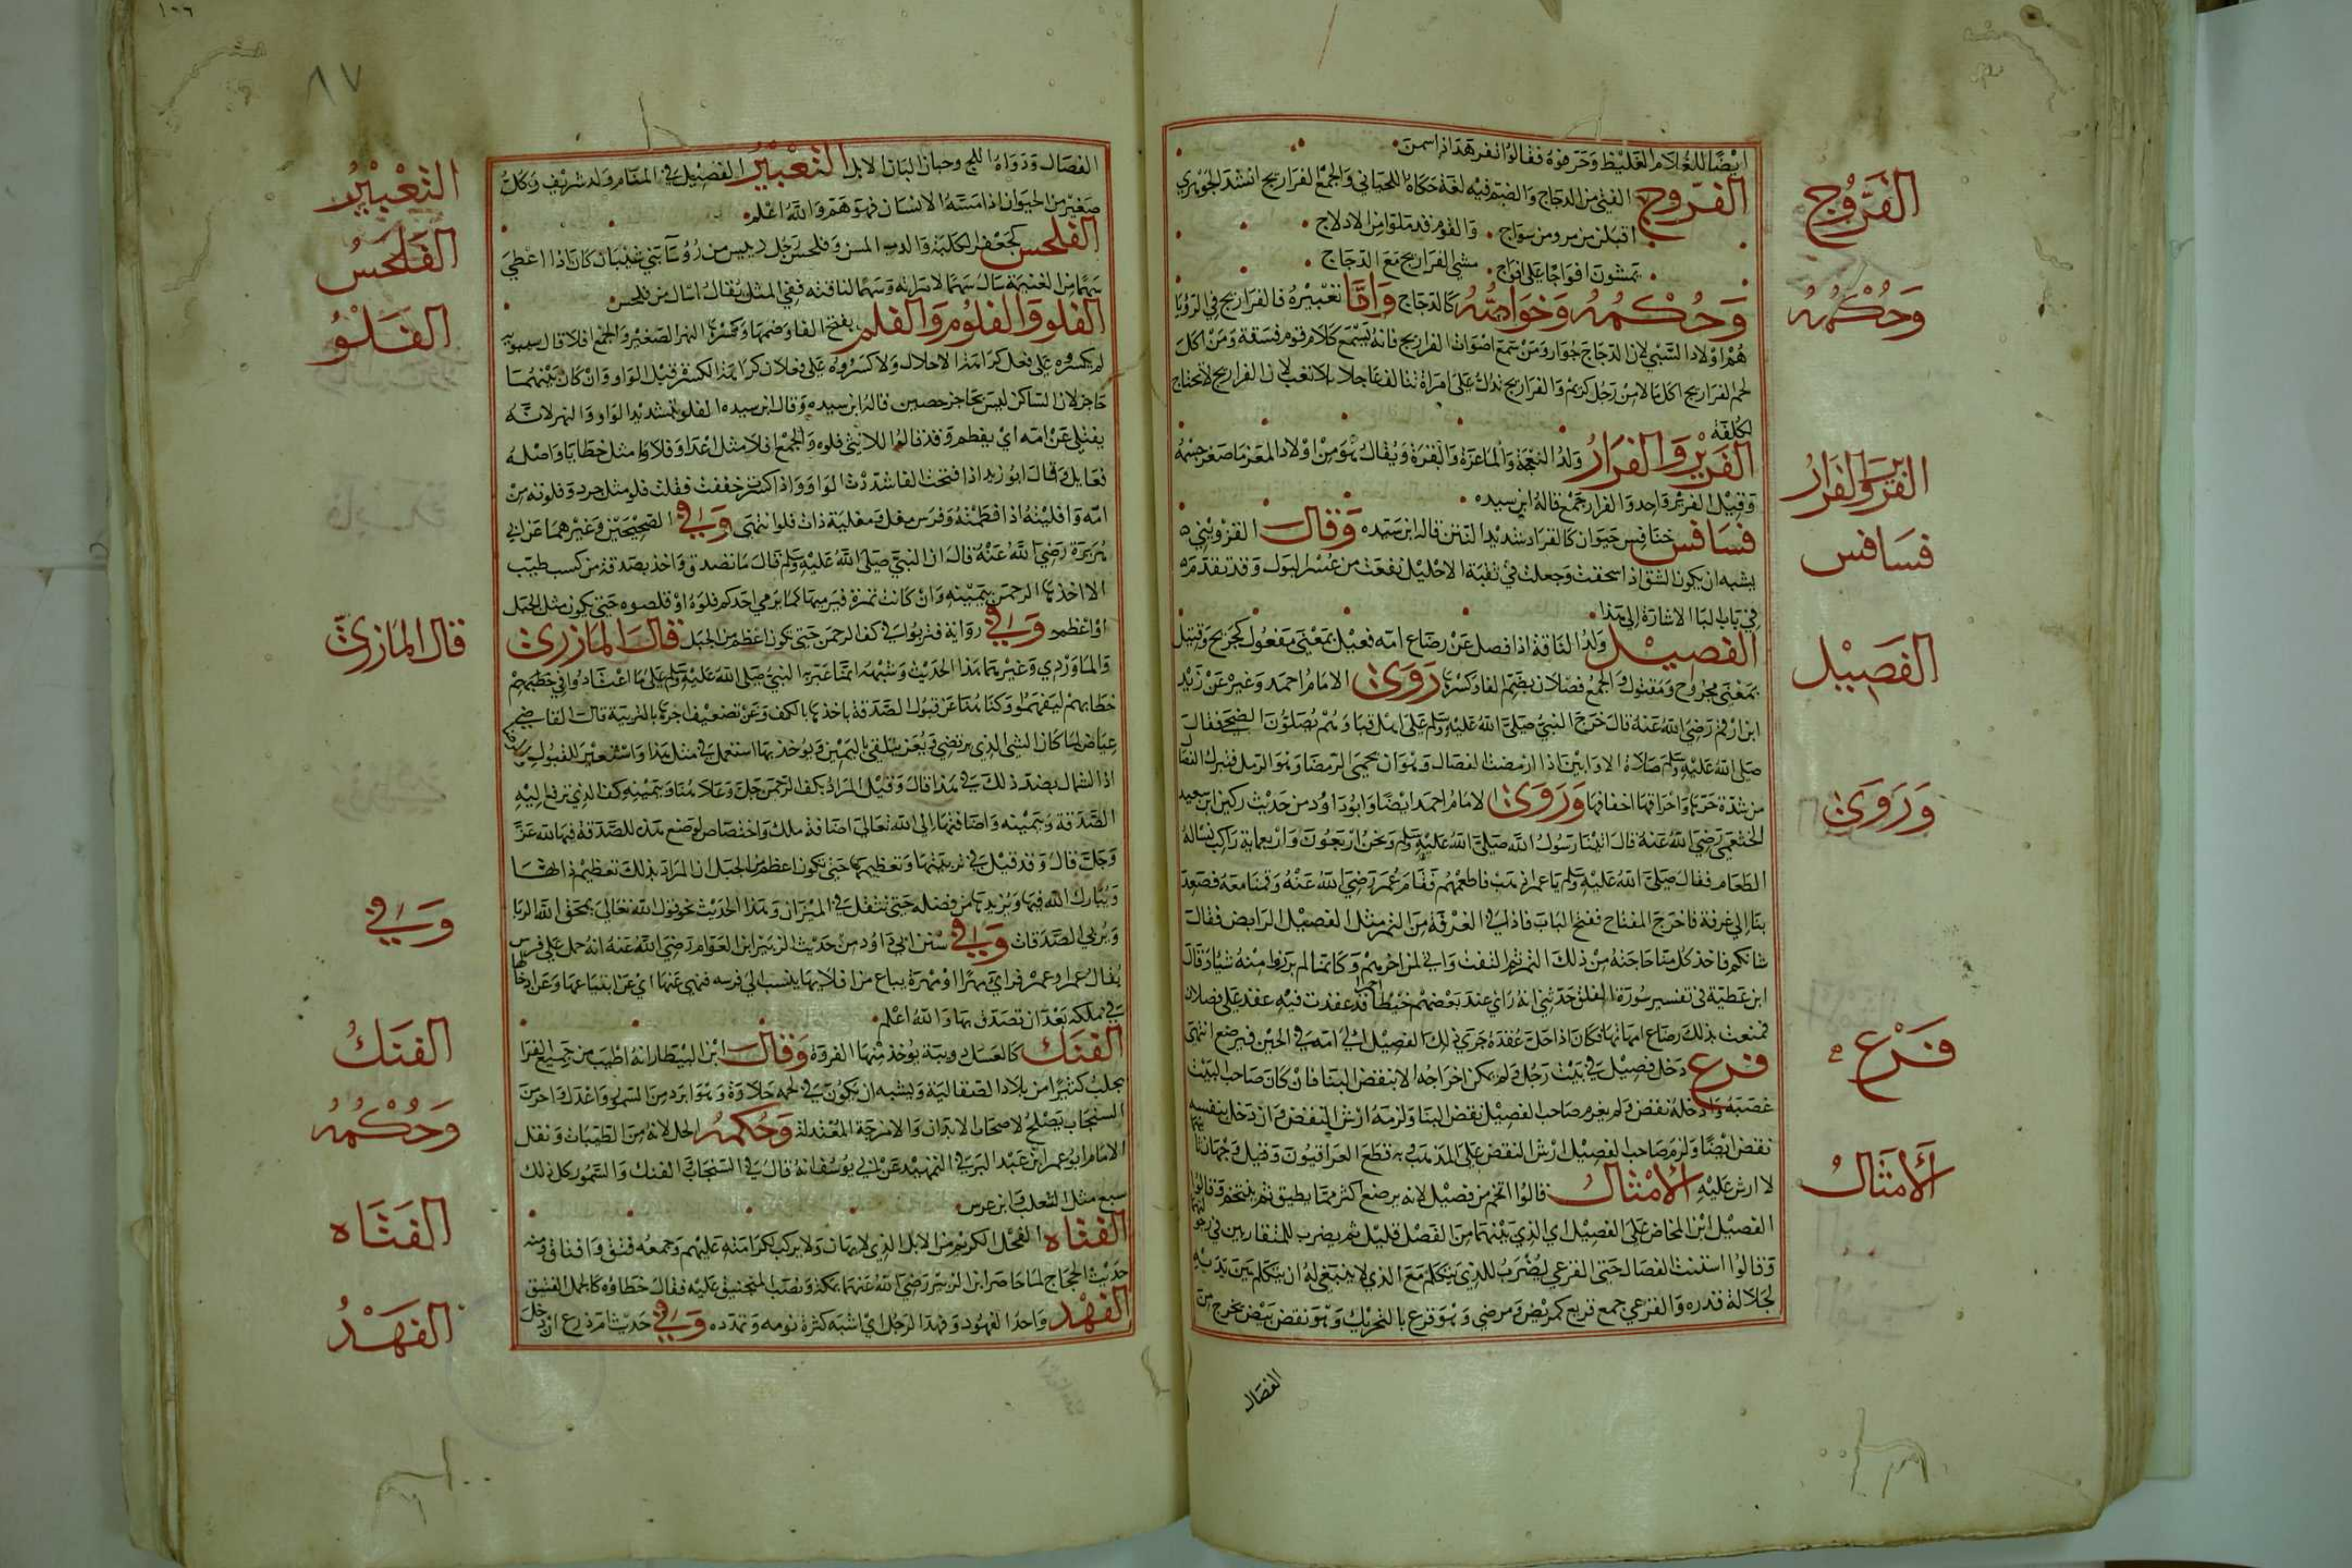 ايضا للغلام الغليظ وحرفوه فقالوا نفرهد اذا سمن
الفروج الفتى من الدجاج والضم فيه لغة حكاه اللحياني والجمع الفراريج انشد الجوهري
اقبلن من مرو من سواج والقوم قد ملوا من الادلاج
تمشون افواجا على افواج مشي الفراريج مع الدجاج
وحكمه وخواصه كالدجاج واما تعبيره فالفراريج في الرؤيا
هم اولاد السبي لان الدجاج جوار ومن سمع اصوات الفراريج فانه يسمع كلام قوم فسقة ومن اكل
لحم الفراريج اكل مالا من رجل كريم والفراريج تدل على امراة تنال نفعا عاجلا بلا تعب لان الفراريج لا تحتاج
لكلفة
الفرير والفرار ولد النعجة والماعزة والبقرة ويقال هو من اولاد المعز ما صغر جسمه
وقيل الفرير واحد والفرار جمع قاله ابن سيده
فسافس خنافس حيوان كالقراد شديد النتن قاله ابن سيده وقال القزويني
يشبه ان يكون البق اذا سحقت وجعلت في ثقبة الاحليل نفعت من عسر البول وقد تقدم
في باب البا الاشارة الى هذا
الفصيل ولد الناقة اذا فصل عن رضاع امه فعيل بمعنى مفعول كجريح وقتيل
بمعنى مجروح ومقتول والجمع فصلان بضم الفا وكسرها روى الامام احمد وغيره عن زيد
ابن ارقم رضي الله عنه قال خرج النبي صلى الله عليه وسلم على اهل قبا وهم يصلون الضحى فقال
صلى الله عليه وسلم صلاة الاوابين اذا ارمضت الفصال وهو ان تحمى الرمضا وهو الرمل فتبرك الفصال
من شدة حرها واحراقها اخفافها وروى الامام احمد ايضا وابو داود من حديث ركين ابن سعيد
الخثعمي رضي الله عنه قال اتينا رسول الله صلى الله عليه وسلم ونحن اربعون واربعماية راكب نساله
الطعام فقال صلى الله عليه وسلم يا عمر اذهب فاطعمهم فقام عمر رضي الله عنه وقمنا معه فصعد
بنا الى غرفة فاخرج المفتاح ففتح الباب فاذا في الغرفة من التمر مثل الفصيل الرابض فقال
شانكم فاخذ كل منا حاجته من ذلك التمر ثم التفت واني لمن اخرهم وكاننا لم نرزا منه شيا وقال
ابن عطية في تفسير سورة الفلق حدثني انه راى عند بعضهم خيطا احمر قد عقدت فيه عقد على فصلان
فمنعت بذلك رضاع امهاتها فكان اذا حل عقدة جرى ذلك الفصيل الى امه في الحين فيرضع انتهى
فرع دخل فصيل في بيت رجل ولم يمكن اخراجه الا بنقض البنا فان كان صاحب البيت
غصبه وادخله نقض ولم يغرم صاحب الفصيل نقض البنا ولزمه ارش النقض وان دخل بنفسه
نقض ايضا ولزم صاحب الفصيل ارش النقض على المذهب به قطع العراقيون وقيل وجهان
لا ارش عليه الامثال قالوا اتخم من فصيل لانه يرضع اكثر مما يطيق ثم يتخم وقالوا
الفصيل ابن المخاض على الفصيل اي الذي بينهما من الفصل قليل ثم يضرب للمتقاربين في
وقالوا استنت الفصال حتى القرعى يضرب للذي يتكلم مع الذي لا ينبغي له ان يتكلم بين يديه
لجلالة قدره والقرعى جمع قريع كمريض ومرضى وهو قرع بالتحريك وهو بيض يخرج من
الفصال
الفروج
وحكمه
الفرير والفرار
فسافس
الفصيل
وروى
فرع
الامثال
٨٧
١٠٦
الفصال ودواه الملح وحباب البان الابل التعبير الفصيل في المنام ولد شريف وكل
صغير من الحيوان اذا مسه الانسان فهو هم والله اعلم
الفلحس كجعفر الكلبة والدب المسن وفلحس رجل رييس من روسا بني شيبان كان اذا اعطي
سهما من الغنيمة سال سهما لامراته وسهما لناقته ففي المثل يقال اسال من فلحس
الفلو والفلوم والفلمر بفتح الفا وضمها وكسرها المهر الصغير والجمع افلا قال سيبويه
لم يكسروه على فعل كراهة الاخلال ولا كسروه على فعلان كراهة الكسرة قبل الواو وان كان بينهما
حاجز لان الساكن ليس بحاجز حصين قاله ابن سيده وقال ابن سيده الفلو بتشديد الواو والمهر لانه
يفتلى عن امه اي يفطم وقد قالوا للانثى فلوه والجمع افلا مثل اعدا وفلاوا مثل خطايا واصله
فعايل وقال ابو زيد اذا فتحت الفا شددت الواو واذا كسرت خففت فقلت فلو مثل جرو وفلوته من
امه وافليته اذا فطمته وفرس مفل ومفلية ذات فلو انتهى وفي الصحيحين وغيرهما عن ابي
هريرة رضي الله عنه قال ان النبي صلى الله عليه وسلم قال ما تصدق واحد بصدقة من كسب طيب
الا اخذها الرحمن بيمينه وان كانت تمرة فيربيها كما يربي احدكم فلوه او قلوصه حتى يكون مثل الجبل
او اعظم وفي رواية فتربوا في كف الرحمن حتى تكون اعظم من الجبل قال المازري
والماوردي وغيرهما هذا الحديث وشبهه انما عبر به النبي صلى الله عليه وسلم على ما اعتادوا في خطابهم
خطابهم ليفهموا وكنا هنا عن قبول الصدقة باخذها بالكف وعن تضعيف اجرها بالتربية قال القاضي
عياض لما كان الشي الذي يرتضى ويعز يتلقى باليمين ويوخذ بها استعمل في مثل هذا واستعير للقبول
اذ الشمال بضد ذلك في هذا قال وقيل المراد بكف الرحمن جل وعلا هنا ويمينه كف الذي ترفع اليه
الصدقة ويمينه واضافتها الى الله تعالى اضافة ملك واختصاص لوضع هذه الصدقة فيها لله عز
وجل قال وقد قيل في تربيتها وتعظيمها حتى تكون اعظم من الجبل ان المراد بذلك تعظيم ذاتها
ويبارك الله فيها ويزيدها من فضله حتى تثقل في الميزان وهذا الحديث نحو قول الله تعالى يمحق الله الربا
ويربي الصدقات وفي سنن ابي داود من حديث الزبير ابن العوام رضي الله عنه انه حمل على فرس
يقال غمر او غمرة فراى مهرا او مهرة يباع من افلايها ينسب الى فرسه فنهى عنها اي عن ابتياعها وعن ادخالها
في ملكه بعد ان تصدق بها والله اعلم
الفنك كالعسل دويبة يوخذ منها الفروة وقال ابن البيطار انه اطيب من جميع الفرا
يجلب كثيرا من بلاد الصقالية ويشبه ان يكون في لحمه حلاوة وهو ابرد من السمور واعدل واحر من
السنجاب يصلح لاصحاب الابدان والامزجة المعتدلة وحكمه الحل لانه من الطيبات ونقل
الامام ابو عمر ابن عبد البر في التمهيد عن ابي يوسف انه قال في السنجاب والفنك والسمور كل ذلك
سبع مثل الثعلب وابن عرس
الفتاه الفحل الكريم من الابل الذي لا يهان ولا يركب لكرامته عليهم وجمعه فنق وافناق ومنه
حديث الحجاج لما حاصر ابن الزبير رضي الله عنهما بمكة ونصب المنجنيق عليه فقال خطاوه كالجمل الفنيق
الفهد واحد الفهود وفهد الرجل اي اشبهه كثرة نومه وتمدده وفي حديث ام زرع ان دخل
التعبير
الفلحس
الفلو
قال المازري
وفي
الفنك
وحكمه
الفتاه
الفهد